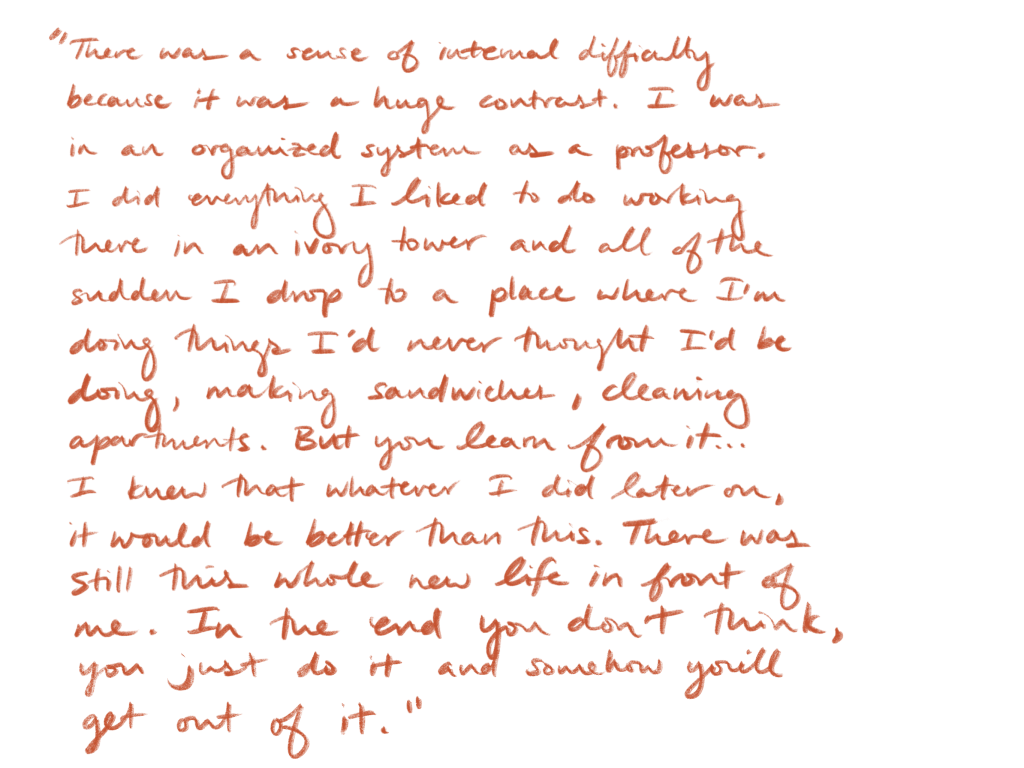 "There was a sense of internal difficulty
because it was a huge contrast. I was
in an organized system as a professor.
I did everything I liked to do working
there in an ivory tower and all of the
sudden I drop to a place where I'm
doing things I'd never thought I'd be
doing, making sandwiches, cleaning
apartments. But you learn from it...
I knew that whatever I did later on,
it would be better than this. There was
still this whole new life in front of
me. In the end you don't think,
you just do it and somehow you'll
get out of it."